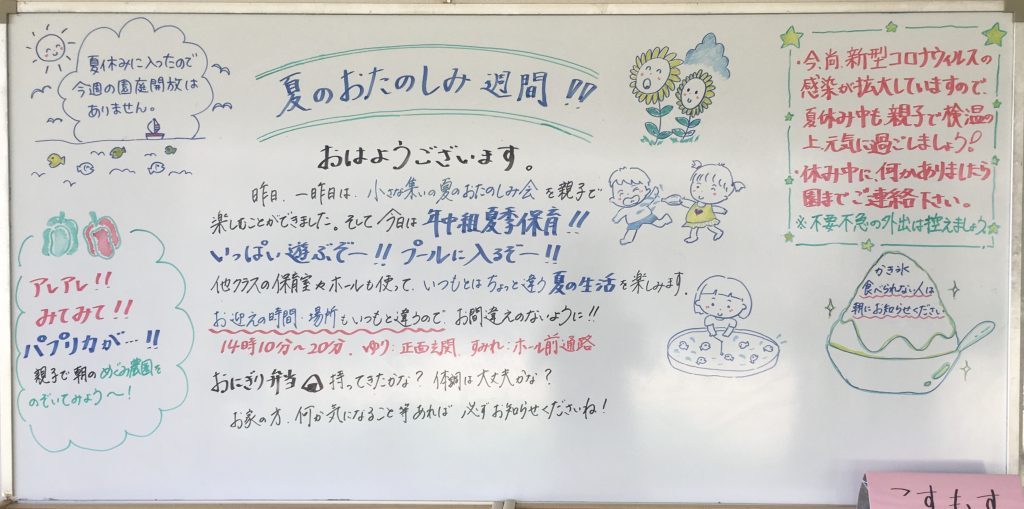 夏休みに入ったので
今週の園庭開放は
ありません。
夏のおたのしみ週間!!
おはようございます。
昨日、一昨日は、小さな集いの夏のおたのしみ会を親子で
楽しむことができました。そして今日は年中組夏季保育!!
いっぱい遊ぶぞー!! プールに入るぞー!!
他クラスの保育室やホールも使って、いつもとはちょっと違う夏の生活を楽しみます。
お迎えの時間・場所もいつもと違うので、お間違えのないように!!
14時10分〜20分、ゆり:正面玄関、すみれ:ホール前通路
おにぎり弁当 持ってきたかな? 体調は大丈夫かな?
お家の方、何か気になること等あれば 必ずお知らせくださいね!
アレアレ!!
みてみて!!
パプリカが…!!
親子で朝のめぐみ農園を
のぞいてみよう〜!
・今、尚、新型コロナウィルスの
感染が拡大していますので、
夏休み中も、親子で検温の
上、元気に過ごしましょう!
・休み中に、何かありましたら
園までご連絡下さい。
※不要不急の外出は控えましょう
かき氷
食べられない人は
朝にお知らせください
こすもす